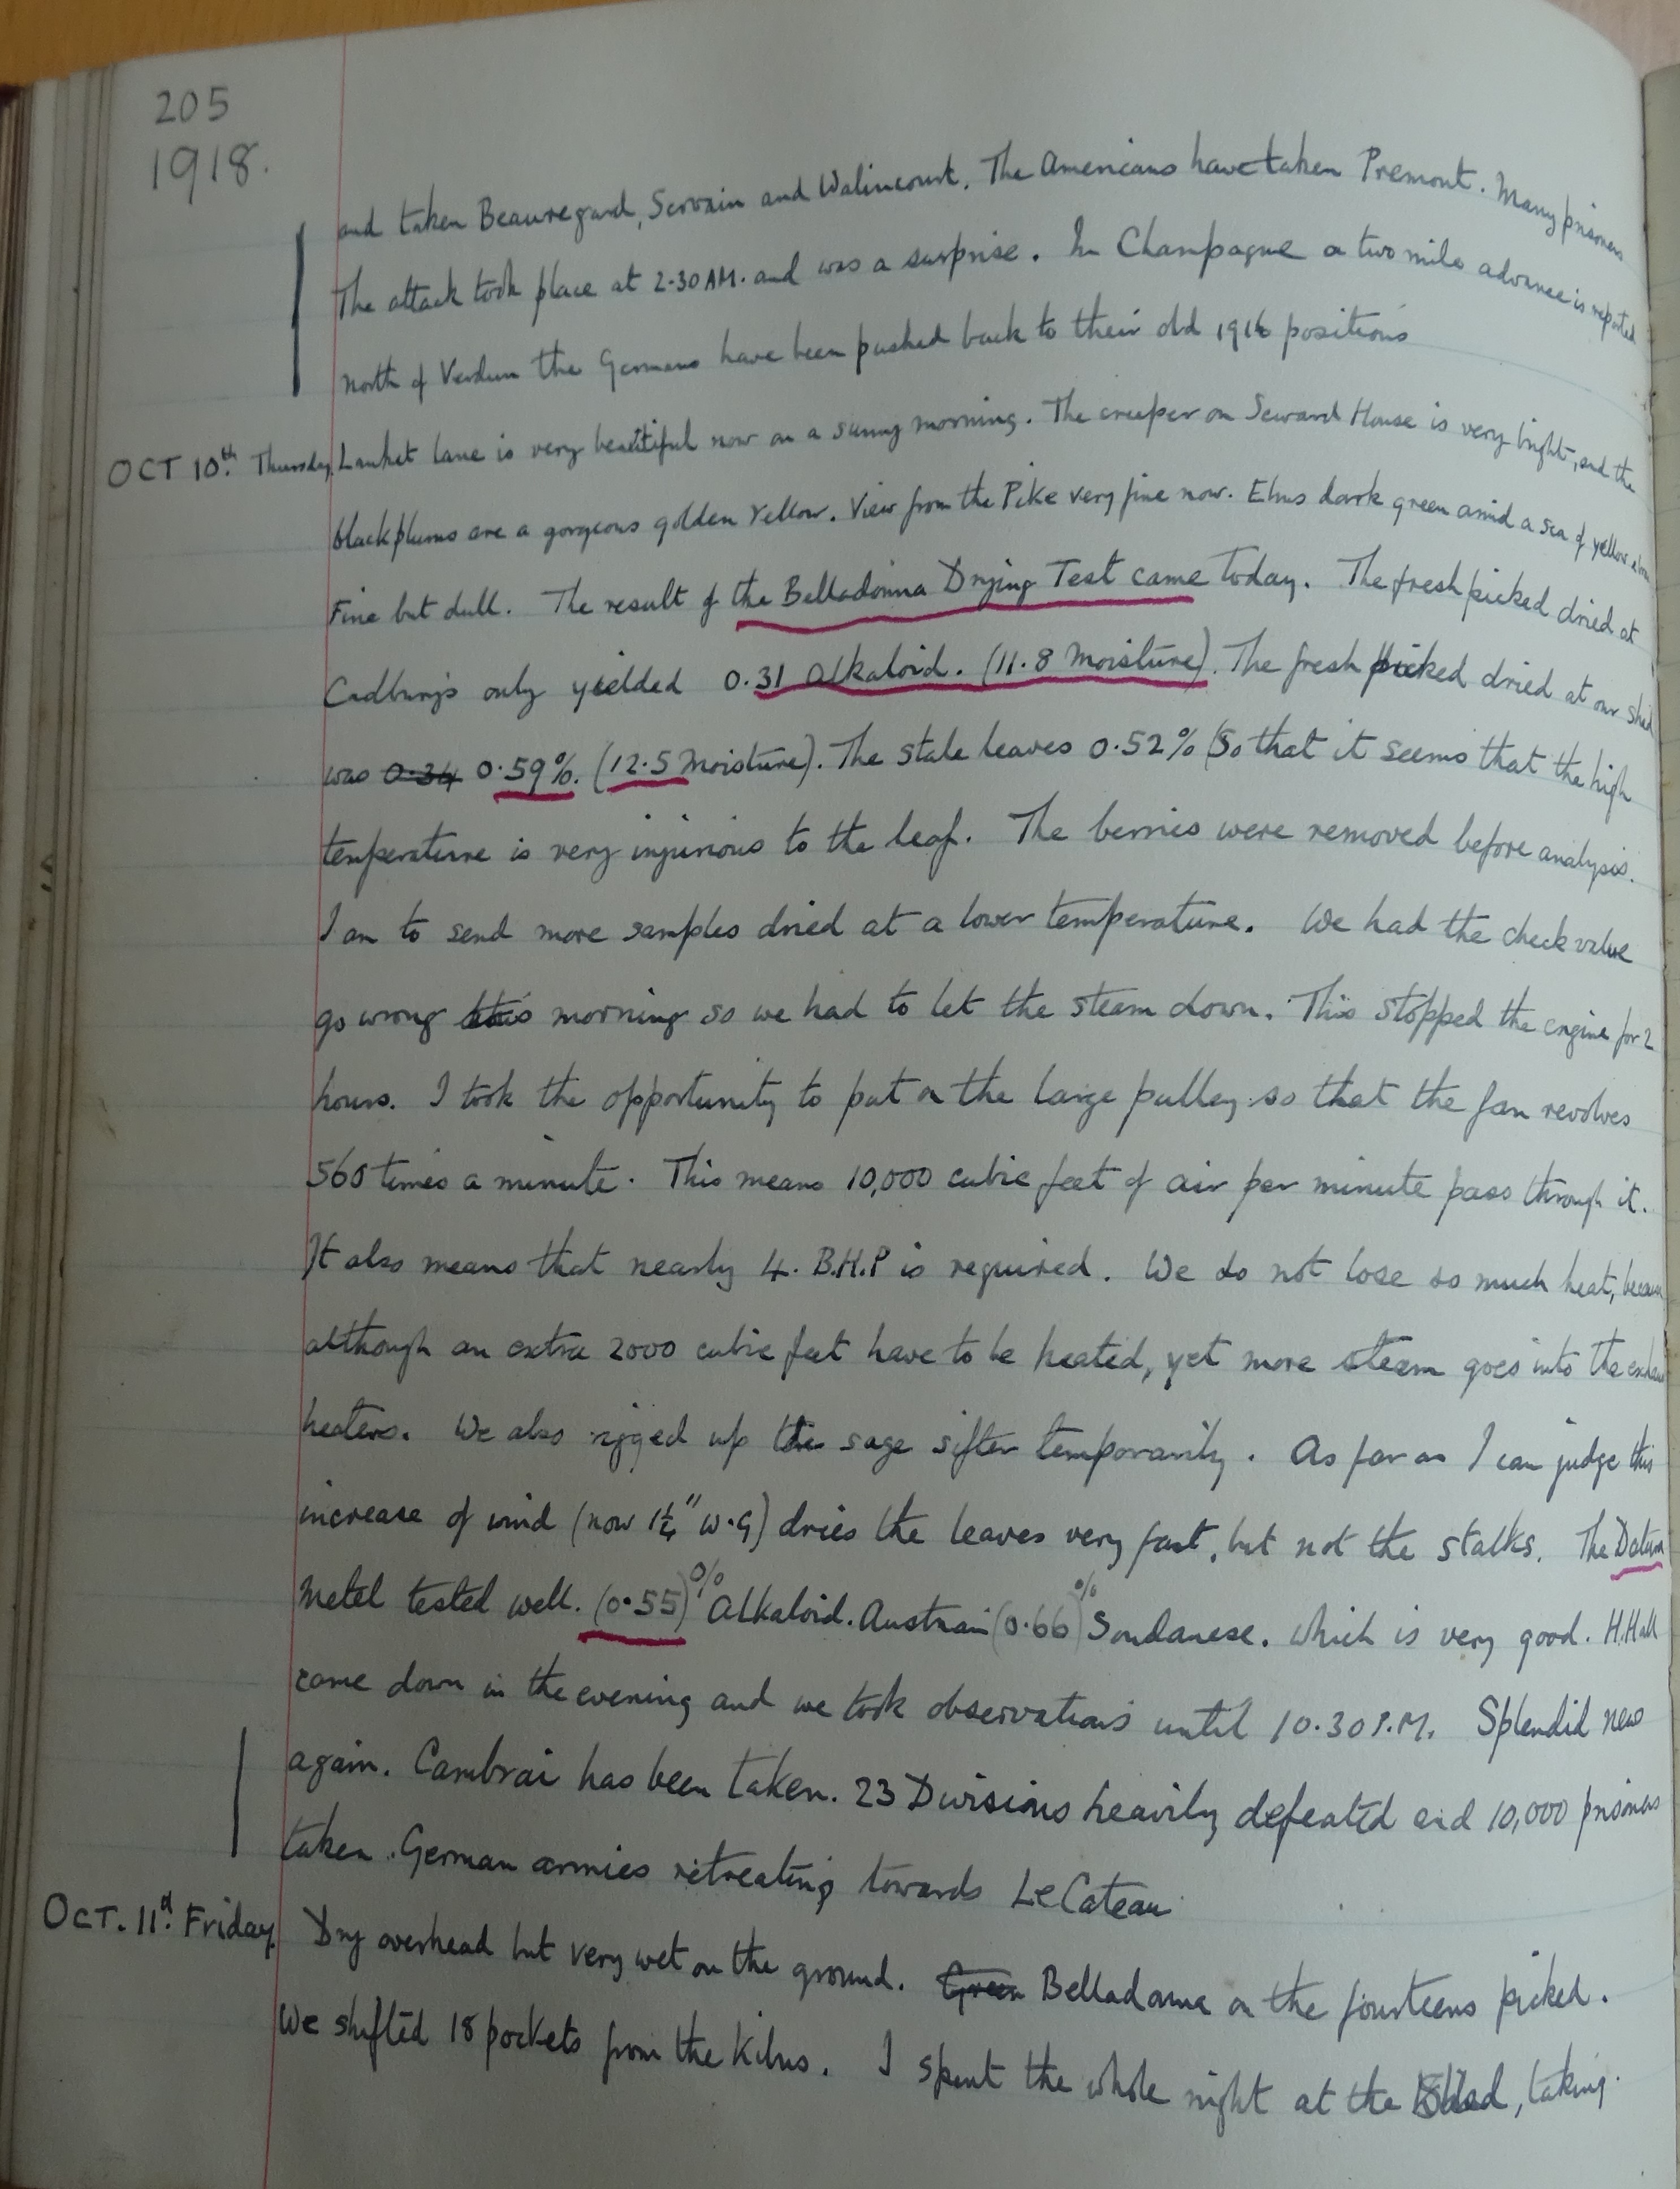 205
1918.
and taken Beauregard, Servain and Walincourt. The Americans have taken Premont. Many prisoners
The attack took place at 2.30 AM. and was a surprise. In Champagne a two mile advance is reported
North of Verdun the Germans have been pushed back to their old 1916 positions
OCT 10th. Thursday. Lanket lane is very beautiful now on a sunny morning. The creeper on Seward House is very bright, and the
blackplums are a gorgeous golden Yellow. View from the Pike very fine now. Elms dark green amid a sea of yellow
Fine but dull. The result of the Belladonna Drying Test came today. The fresh picked dried at
Cadbury's only yielded 0.31 Alkaloid. (11.8 Moisture). The fresh picked dried at our shed
was 0.34 0.59%. (12.5 Moisture). The stale leaves 0.52% (So that it seems that the high
temperature is very injurious to the leaf. The berries were removed before analysis.
I am to send more samples dried at a lower temperature. We had the check value
go wrong this morning so we had to let the steam down. This stopped the engine for 2
hours. I took the opportunity to put on the large pulley so that the fan revolves
560 times a minute. This means 10,000 cubic feet of air per minute pass through it.
It also means that nearly 4. B.H.P is required. We do not lose so much heat, because
although an extra 2000 cubic feet have to be heated, yet more steam goes into the
heaters. We also rigged up the sage sifter temporarily. As far as I can judge this
increase of wind (now 1¼" W.G) dries the leaves very fast, but not the stalks. The Datura
Metel tested well. (0.55)% Alkaloid. Austrain (0.66)% Soudanese. Which is very good. H.Hall
came down in the evening and we took observations until 10.30 P.M. Splendid news
again. Cambrai has been taken. 23 Divisions heavily defeated and 10,000 prisoners
taken. German armies retreating towards Le Cateau
OCT. 11th. Friday. Dry overhead but very wet on the ground. Green Belladonna on the fourteens picked.
We shifted 18 pockets from the Kilns. I spent the whole night at the Shed, taking